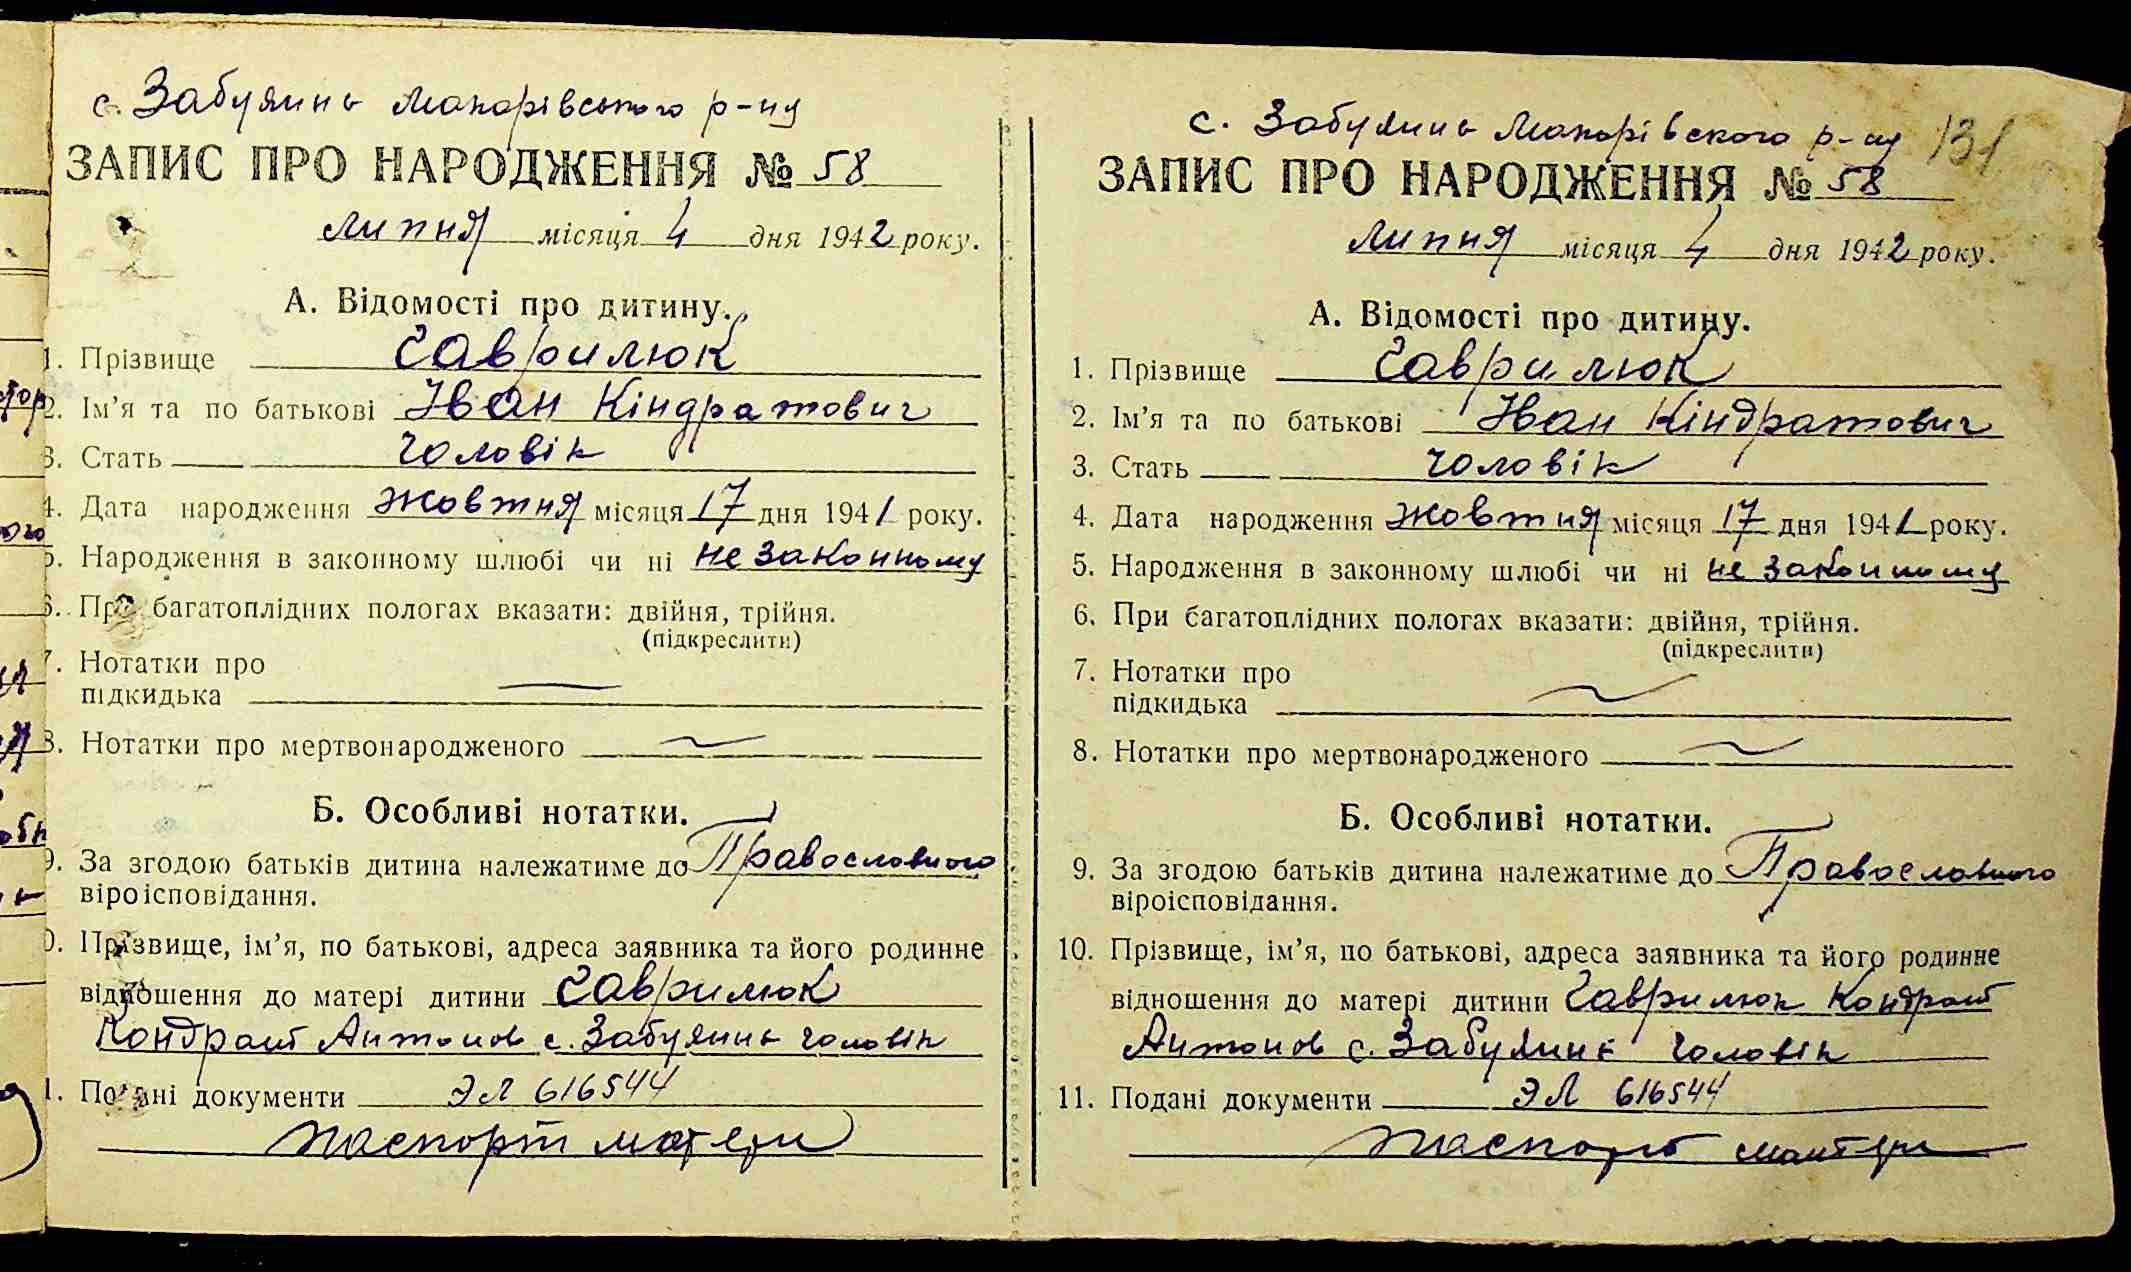 с. Забуянь Макарівського р-ну
ЗАПИС ПРО НАРОДЖЕННЯ № 58
липня місяця 4 дня 1942 року.
А. Відомості про дитину.
1. Прізвище Гаврилюк
2. Ім'я та по батькові Іван Кіндратович
3. Стать чоловік
4. Дата народження жовтня місяця 17 дня 1941 року.
5. Народження в законному шлюбі чи ні не законному
6. При багатоплідних пологах вказати: двійня, трійня.
(підкреслити)
7. Нотатки про
підкидька —
8. Нотатки про мертвонародженого ~
Б. Особливі нотатки.
9. За згодою батьків дитина належатиме до Православного
віроісповідання.
0. Прізвище, ім'я, по батькові, адреса заявника та його родинне
відношення до матері дитини Гаврилюк
Кондрат Антонов с. Забуянь чоловік
1. Подані документи ЭЛ 616544
паспорт матери
с. Забуянь Макарівского р-ну 131
ЗАПИС ПРО НАРОДЖЕННЯ № 58
липня місяця 4 дня 1942 року.
А. Відомості про дитину.
1. Прізвище Гаврилюк
2. Ім'я та по батькові Іван Кіндратович
3. Стать чоловік
4. Дата народження жовтня місяця 17 дня 1941 року.
5. Народження в законному шлюбі чи ні не законному
6. При багатоплідних пологах вказати: двійня, трійня.
(підкреслити)
7. Нотатки про
підкидька ~
8. Нотатки про мертвонародженого ~
Б. Особливі нотатки.
9. За згодою батьків дитина належатиме до Православного
віроісповідання.
10. Прізвище, ім'я, по батькові, адреса заявника та його родинне
відношення до матері дитини Гаврилюк Кондрат
Антонов с. Забуянь чоловік
11. Подані документи ЭЛ 616544
паспорт матери